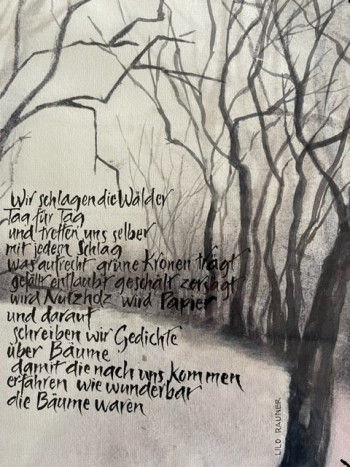 Wir schlagen die Wälder
Tag für Tag
und treffen uns selber
mit jedem Schlag
was aufrecht grüne Kronen trägt
gefällt entlaubt geschält zersägt
wird Nutzholz wird Papier
und darauf
schreiben wir Gedichte
über Bäume
damit die nach uns kommen
erfahren wie wunderbar
die Bäume waren
LILO RAUNER